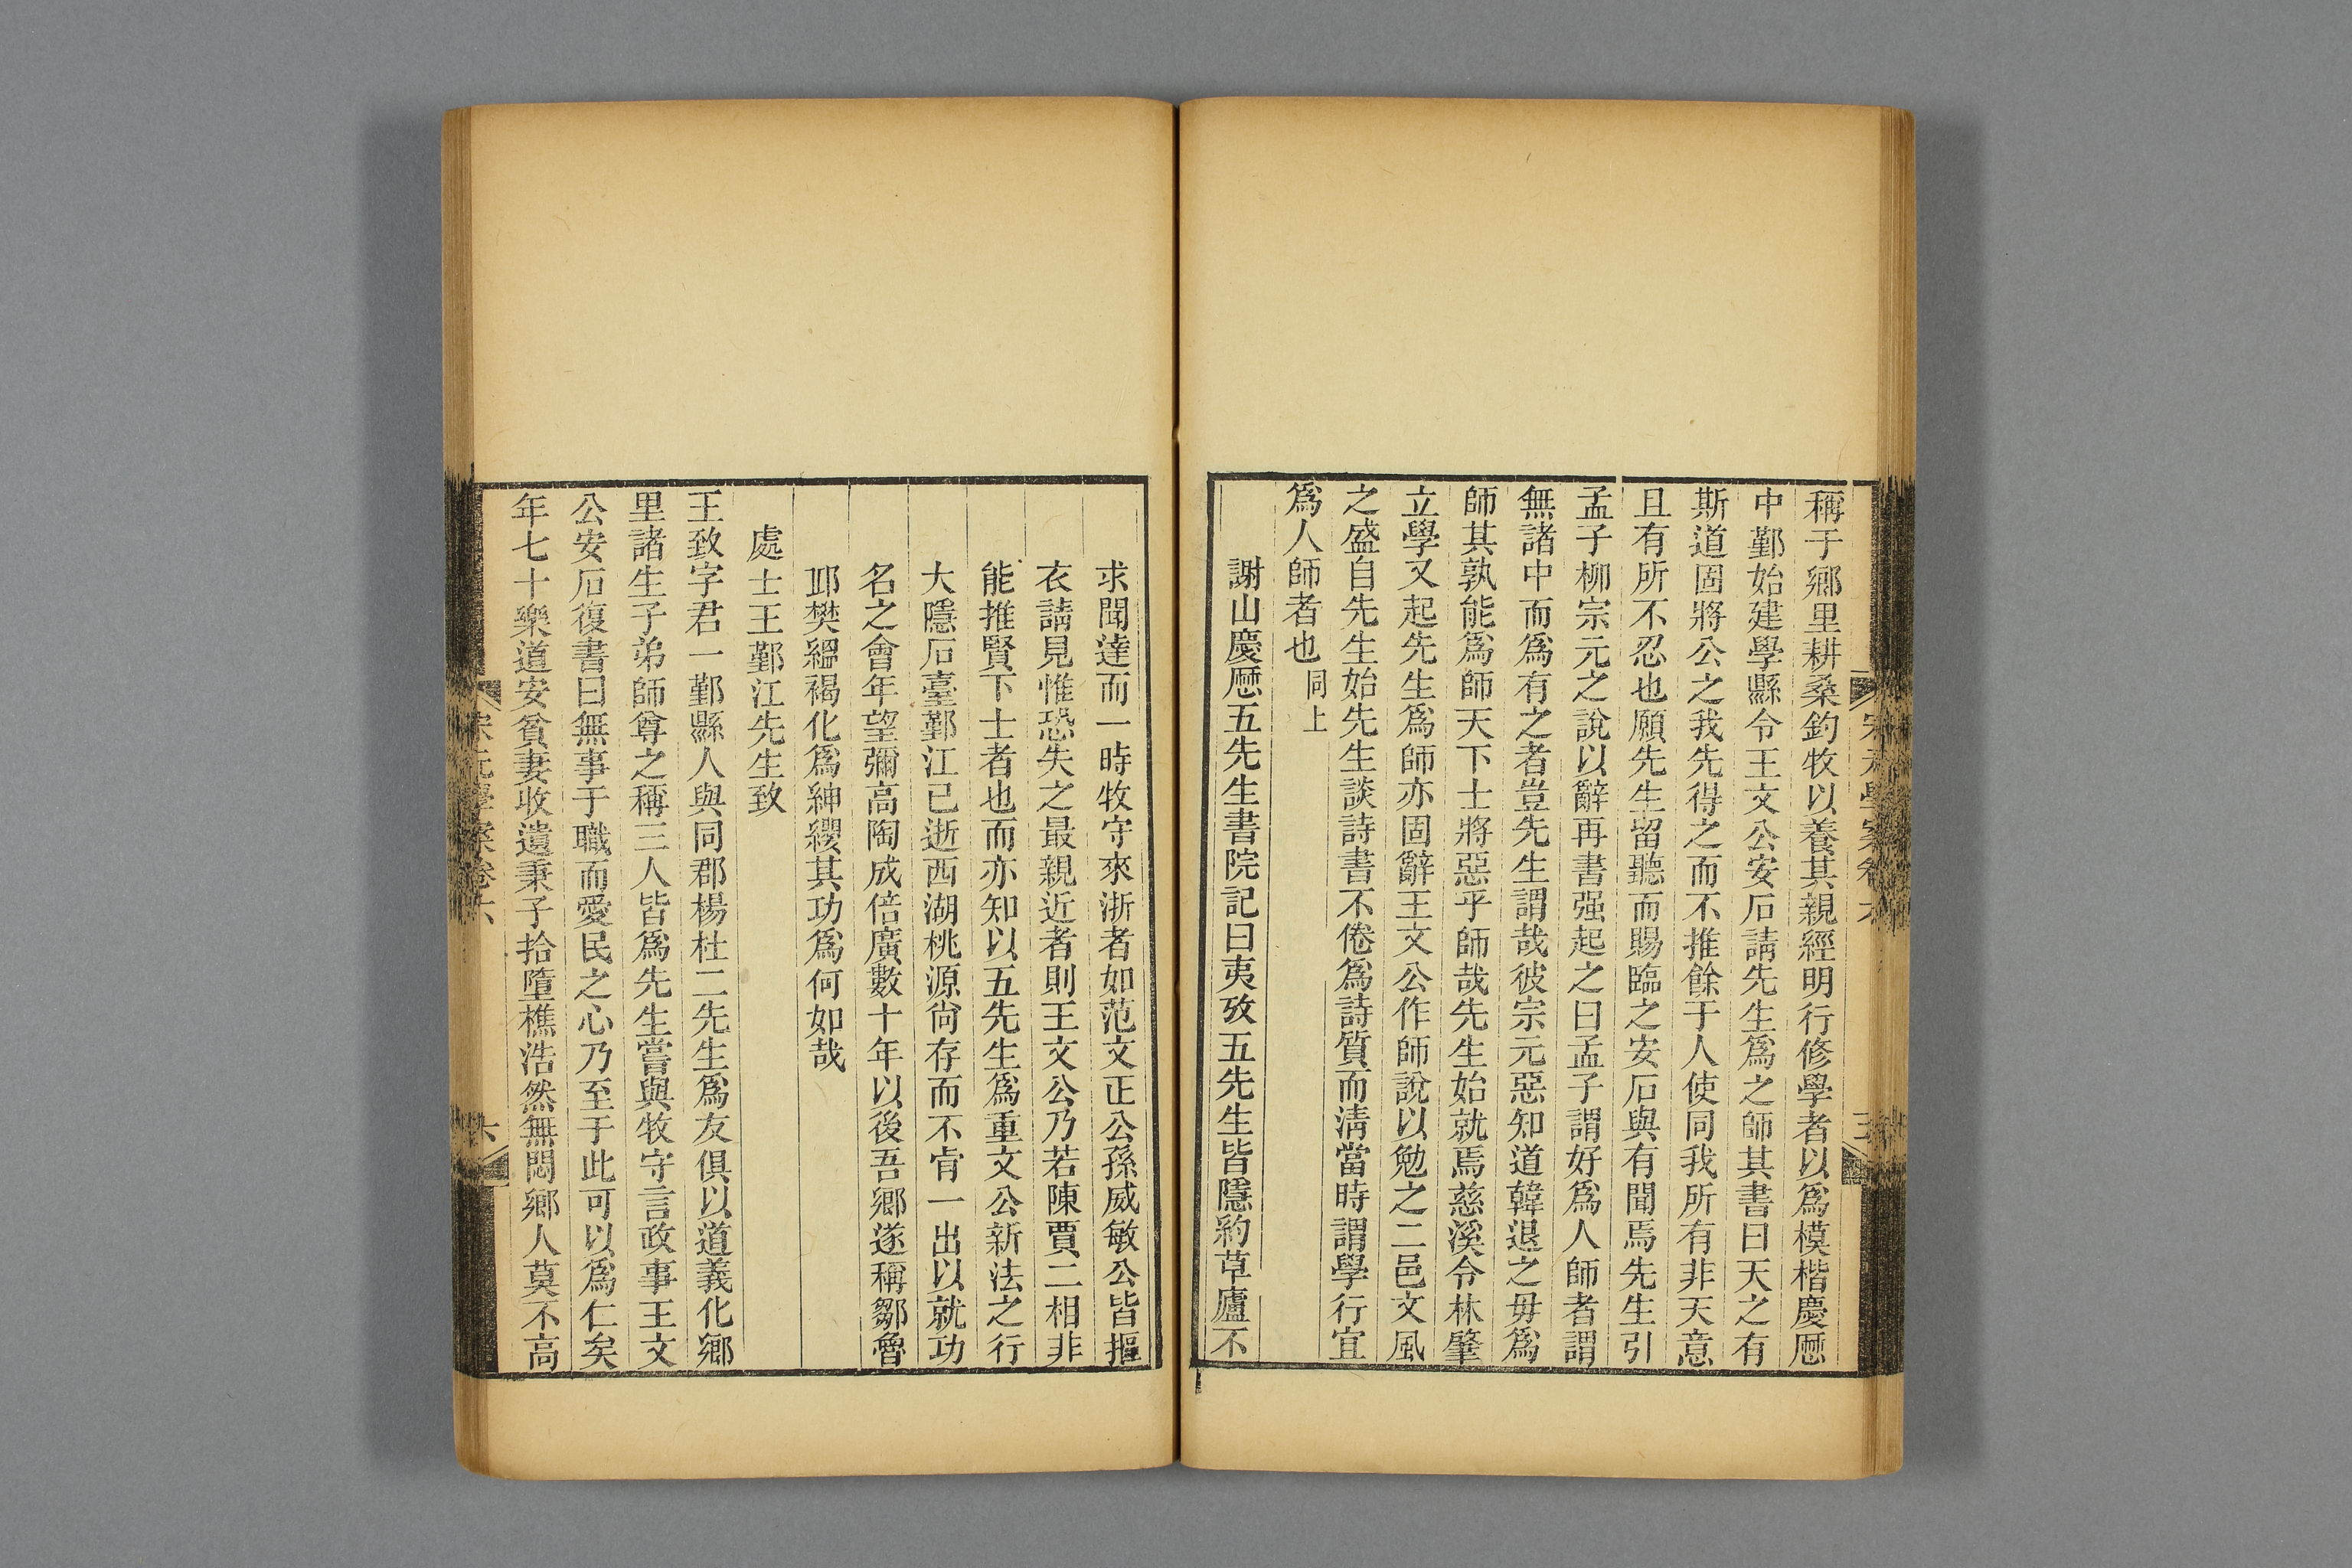 稱于鄉里耕桑釣牧以養其親經明行修學者以爲模楷慶曆
中鄞始建學縣令王文公安石請先生爲之師其書曰天之有
斯道固將公之我先得之而不推餘于人使同我所有非天意
且有所不忍也願先生留聽而賜臨之安石與有聞焉先生引
孟子柳宗元之說以辭再書强起之曰孟子謂好爲人師者謂
無諸中而爲有之者豈先生謂哉彼宗元惡知道韓退之毋爲
師其孰能爲師天下士將惡乎師哉先生始就焉慈溪令林肇
立學又起先生爲師亦固辭王文公作師說以勉之二邑文風
之盛自先生始先生談詩書不倦爲詩質而淸當時謂學行宜
爲人師者也同上
謝山慶曆五先生書院記曰夷攷五先生皆隱約草廬不
求聞達而一時牧守來浙者如范文正公孫威敏公皆摳
衣請見惟恐失之最親近者則王文公乃若陳賈二相非
能推賢下士者也而亦知以五先生爲重文公新法之行
大隱石臺鄞江已逝西湖桃源尙存而不肯一出以就功
名之會年望彌高陶成倍廣數十年以後吾鄉遂稱鄒魯
邱樊縕褐化爲紳纓其功爲何如哉
處士王鄞江先生致
王致字君一鄞縣人與同郡楊杜二先生爲友俱以道義化鄉
里諸生子弟師尊之稱三人皆爲先生嘗與牧守言政事王文
公安石復書曰無事于職而愛民之心乃至于此可以爲仁矣
年七十樂道安貧妻收遺秉子拾墮樵浩然無悶鄉人莫不高
宋元學案卷六
六